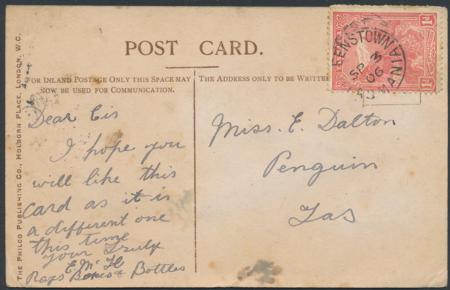 POST CARD.
FOR INLAND POSTAGE ONLY THIS SPACE MAY
NOW BE USED FOR COMMUNICATION.
THE ADDRESS ONLY TO BE WRITTEN
THE PHILCO PUBLISHING CO., HOLBORN PLACE, LONDON, W.C.
Dear Cis
I hope you
will like this
card as it is
a different one
this time
your Truly
E. McH
Rags Bones & Bottles
Miss. E. Dalton
Penguin
Tas
EENSTOWN
SP
06
1D